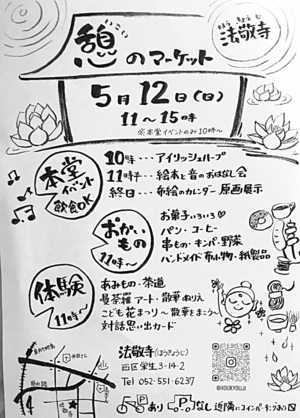 いこい
憩のマーケット
ほうきょうじ
法敬寺
5月12日(日)
11〜15時
※本堂イベントのみ10時〜
本堂
イベント
飲食OK
10時・・・アイリッシュハープ
11時半・・・絵本と音のおはなし会
終日・・・布絵のカレンダー 原画展示
おかいもの
11時〜
お菓子いろいろ♡
パン・コーヒー
串もの・キンパ・野菜
ハンドメイド 布小物・紙製品
体験
11時〜
あみもの・茶道
曼荼羅アート・散華ぬりえ
こども花まつり〜散華をまこう〜
対話・思い出カード
法敬寺(ほうきょうじ)
西区栄生3-14-2
Tel 052-551-6237
@HOUKYOUJI
Pあり
Pなし 近隣にコインパーキングあり